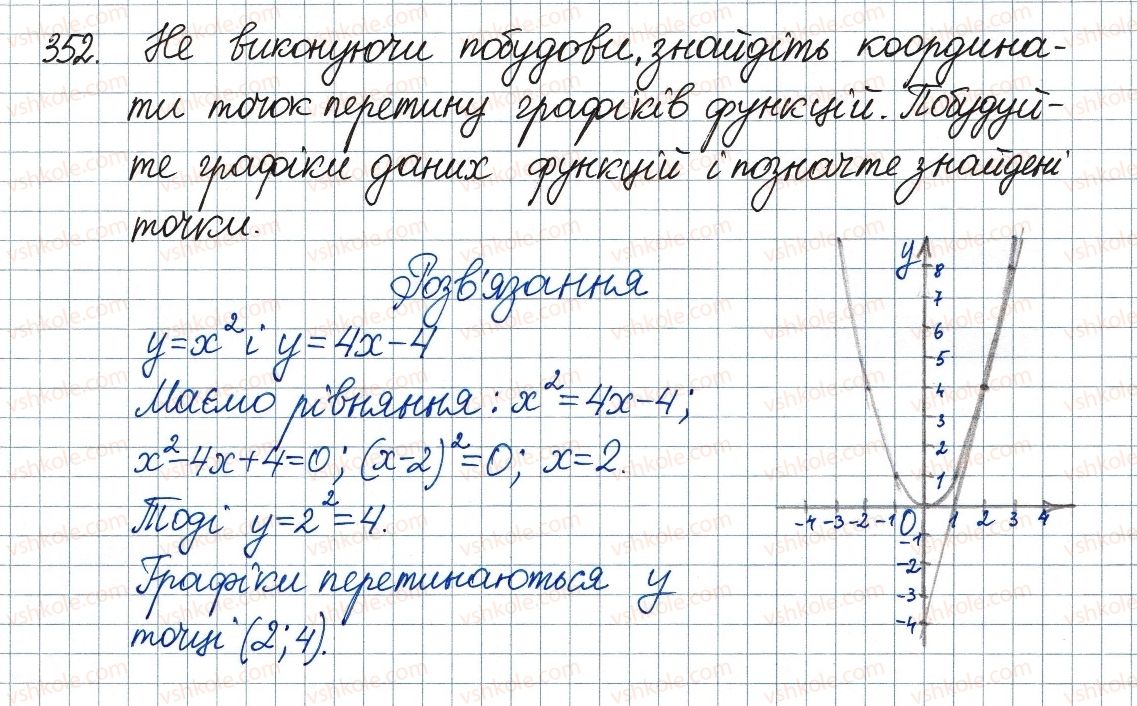 352. Не виконуючи побудови, знайдіть координа-
ти точок перетину графіків функцій. Побудуй-
те графіки даних функцій і позначте знайдені
точки.
Розв'язання
y=x² і y=4x-4
Маємо рівняння: x²=4x-4;
x²-4x+4=0; (x-2)²=0; x=2.
Тоді y=2²=4.
Графіки перетинаються у
точці (2;4).
y
8
7
6
5
4
3
2
1
-4 -3 -2 -1 0 1 2 3 4
-1
-2
-3
-4
vshkole.com